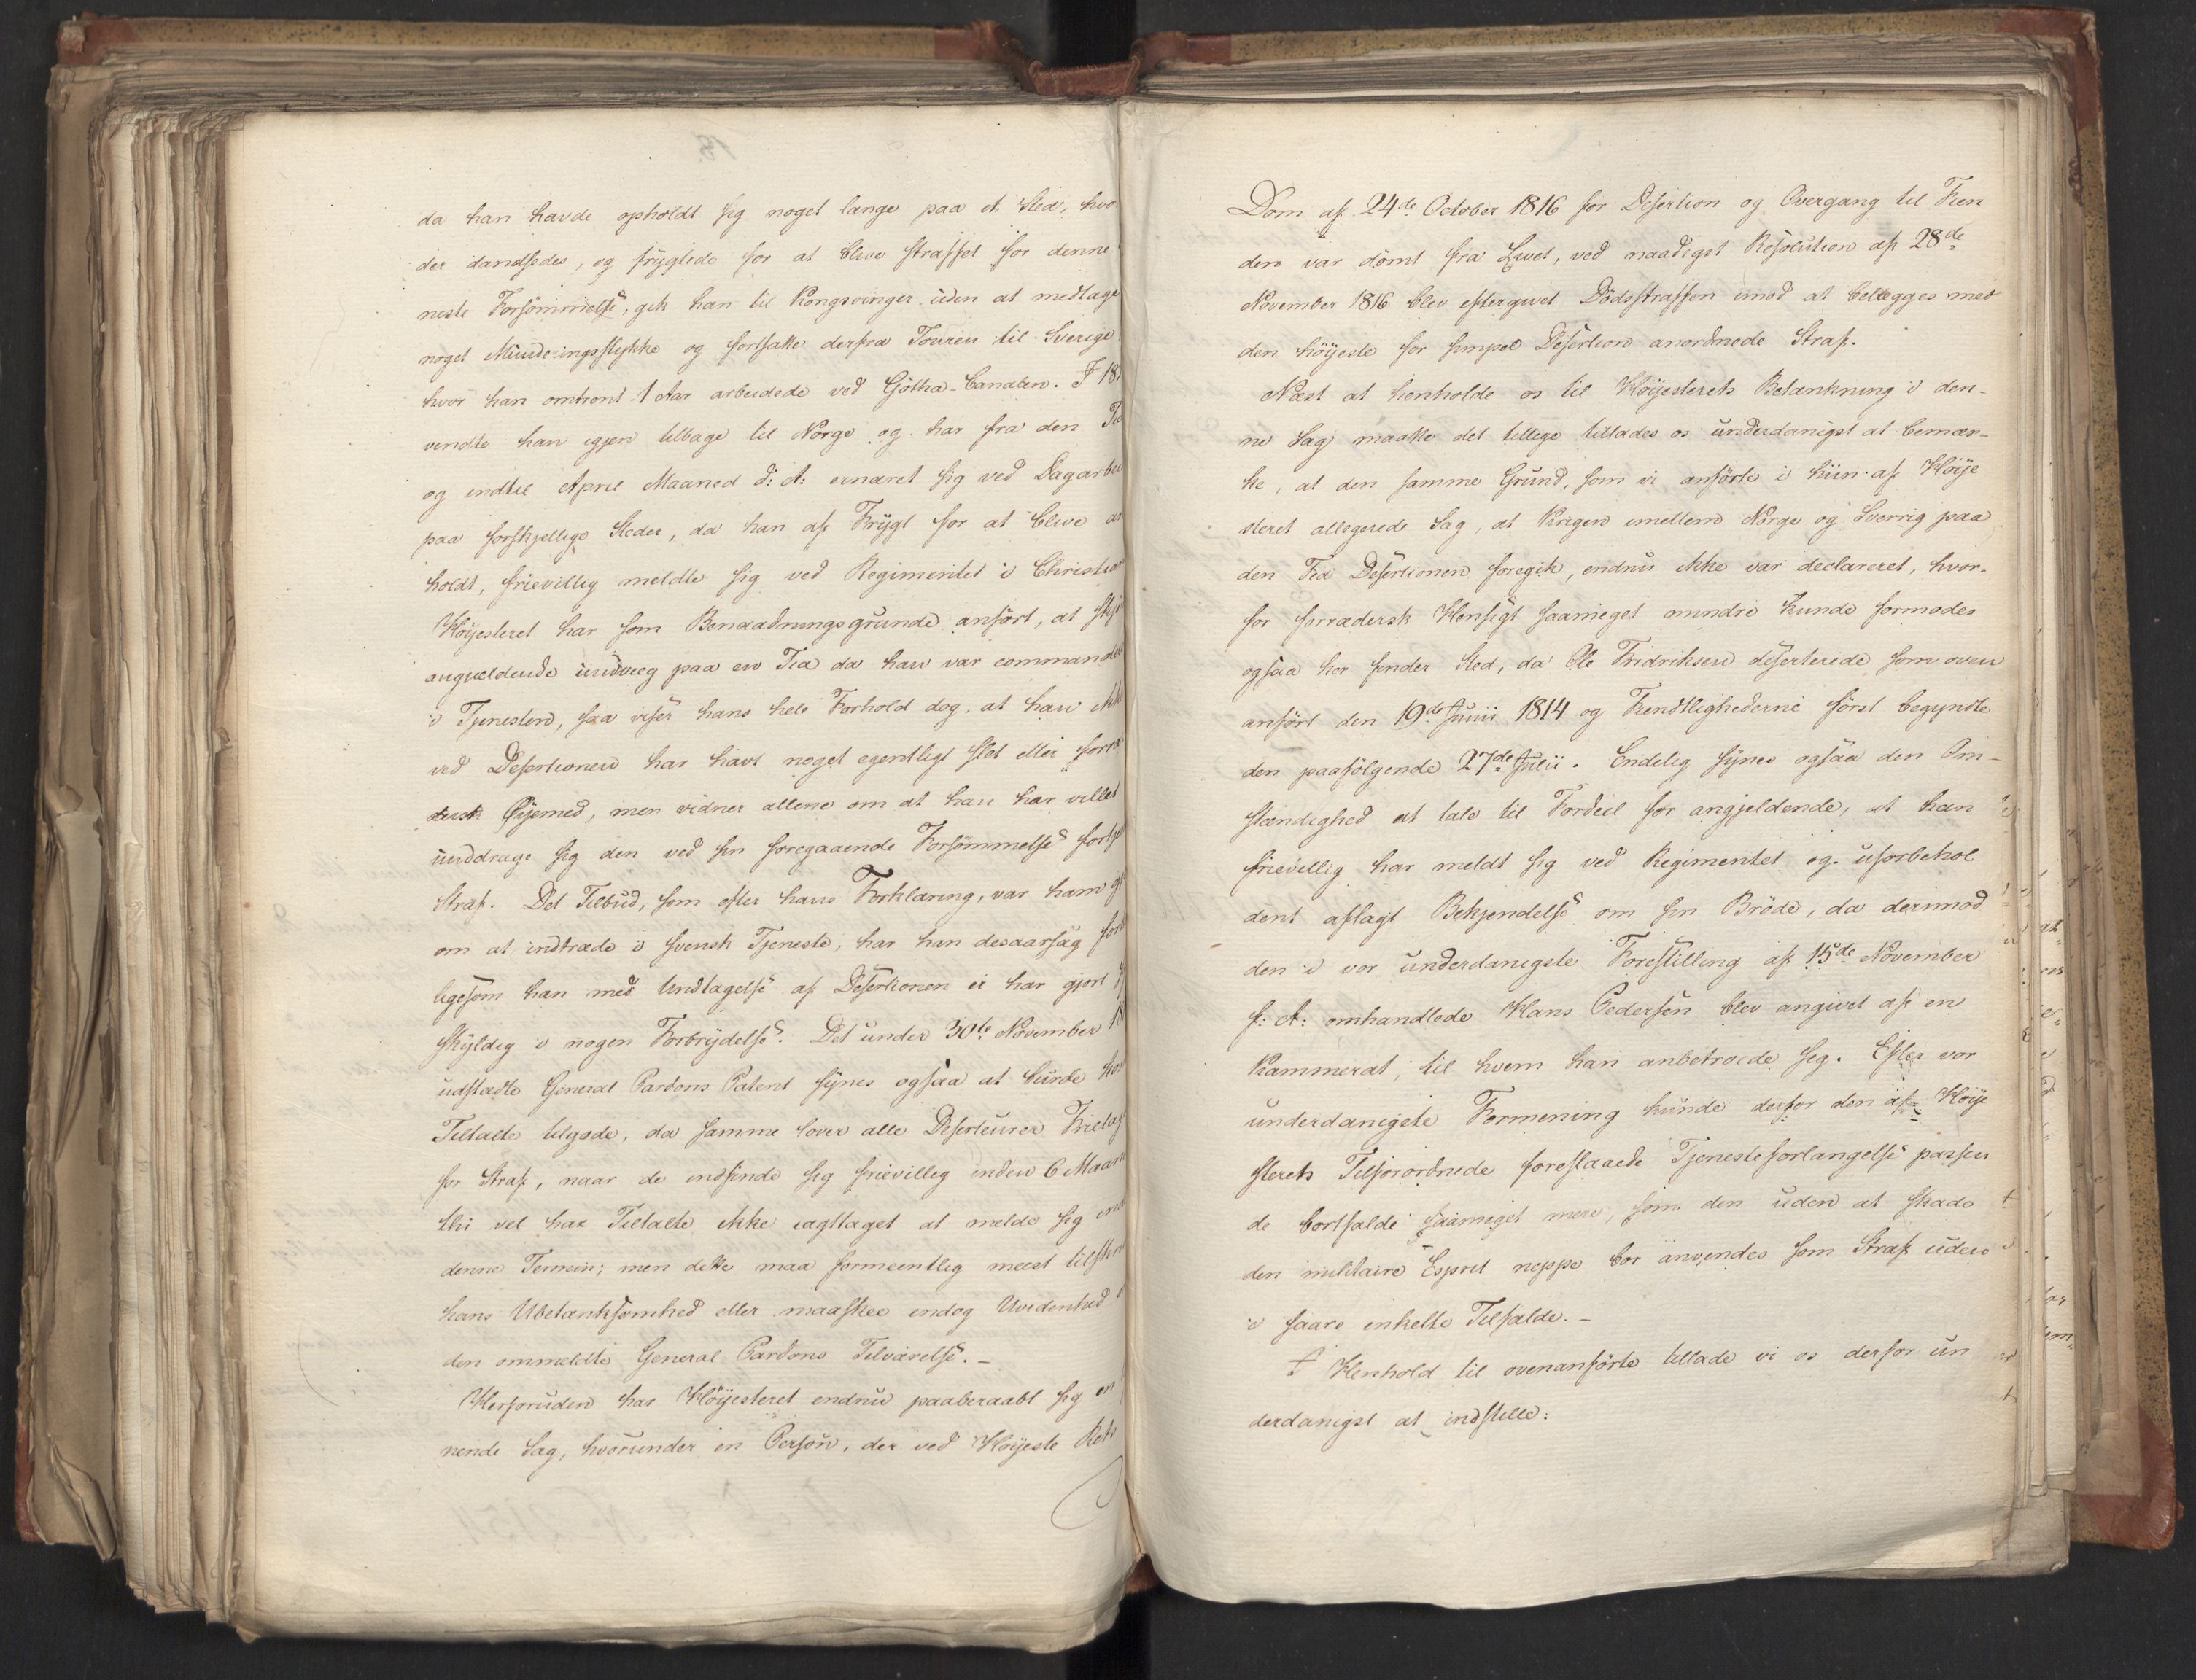 da han havde opholdt sig noget længe paa et Sted, hvo
der dandsedes, og frygtede for at blive straffet for denne
neste Forsømmelse, gik han til Kongsvinger uden at medtage
noget Munderingsstykke og fortsatte derfra Touren til Sverige
hvor han omtrent 1 Aar arbeidede ved Götha-Canalen. I 18
vendte han igjen tilbage til Norge og har fra den Tid
og indtil April Maaned d: A: ernæret sig ved Dagarbei
paa forskjellige Steder, da han af Frygt for at blive an
holdt, frievillig meldte sig ved Regimentet i Christian
Höyesteret har som Benaadningsgrunde anfört, at skjö
angjeldende undveeg paa en Tid da han var commande
i Tjenesten, saa viser hans hele Forhold dog, at han ikke
ved Desertionen har havt noget egentligt slet eller forræ
dersk Öyemed, men vidner allene om at han har villet
unddrage sig den ved sin foregaaende Forsømmelse forsk
Straf. Det Tilbud, som efter hans Forklaring, var ham gj
om at indtræde i svensk Tjeneste, har han desaarsag for
ligesom han med Undtagelse af Desertionen ei har gjort
skyldig i nogen Forbrydelse. Det under 30te November 18
udstædte General Pardons Patent synes ogsaa at burde ko
Tiltalte tilgode, da samme lover alle Deserteurer Frietag
for Straf, naar de indfinde sig frievillig inden 6 Maan
thi vel har Tiltalte ikke iagttaget at melde sig ind
denne Termin; men dette maa formeentlig meest tilskri
hans Ubetænksomhed eller maaskee endog Uvidenhed
den ommeldte General Pardons Tilværelse. –
Herforuden har Höyesteret endnu paaberaabt sig en
nende Sag, hvorunder en Person, der ved Höyeste Rets
Dom af 24de October 1816 for Desertion og Overgang til Fien
den var dömt fra Livet, ved naadigst Resolution af 28de
November 1816 blev eftergivet Dödsstraffen imod at belegges med
den höyeste for simpel Desertion anordnede Straf.
Næst at henholde os til Höyesterets Betænkning i den-
ne Sag maatte det tillige tillades os underdanigst at bemær-
ke, at den samme Grund, som vi anförte i hiin af Höye
steret allegerede Sag, at Krigen imellem Norge og Sverrig paa
den Tid Desertionen foregik, endnu ikke var declareret, hvor-
for forrædersk Hensigt saameget mindre kunde formodes
ogsaa her finder Sted, da Ole Fridriksen deserterede som oven
anfört den 19de Junii 1814 og Fiendtlighederne först begyndte
den paafölgende 27de Julii. Endelig synes ogsaa den Om-
stændighed at tale til Fordeel for angjeldende, at han
frievillig har meldt sig ved Regimentet og uforbehol
dent aflagt Bekjendelse om sin Bröde, da derimod
den i vor underdanigste Forestilling af 15de November
f: A: omhandlede Hans Pedersen blev angivet af en
Kammerat, til hvem han anbetroede sig. Efter vor
underdanigste Formening kunde derfor den af Höye
sterets Tilforordnede foreslaaede Tjenesteforlængelse passen
de bortfalde saameget mere, som den uden at skade
den militaire Esprit neppe bör anvendes som Straf uden
i saare enkelte Tilfælde. –
I Henhold til ovenanförte tillade vi os derfor un
derdanigst at indstille: